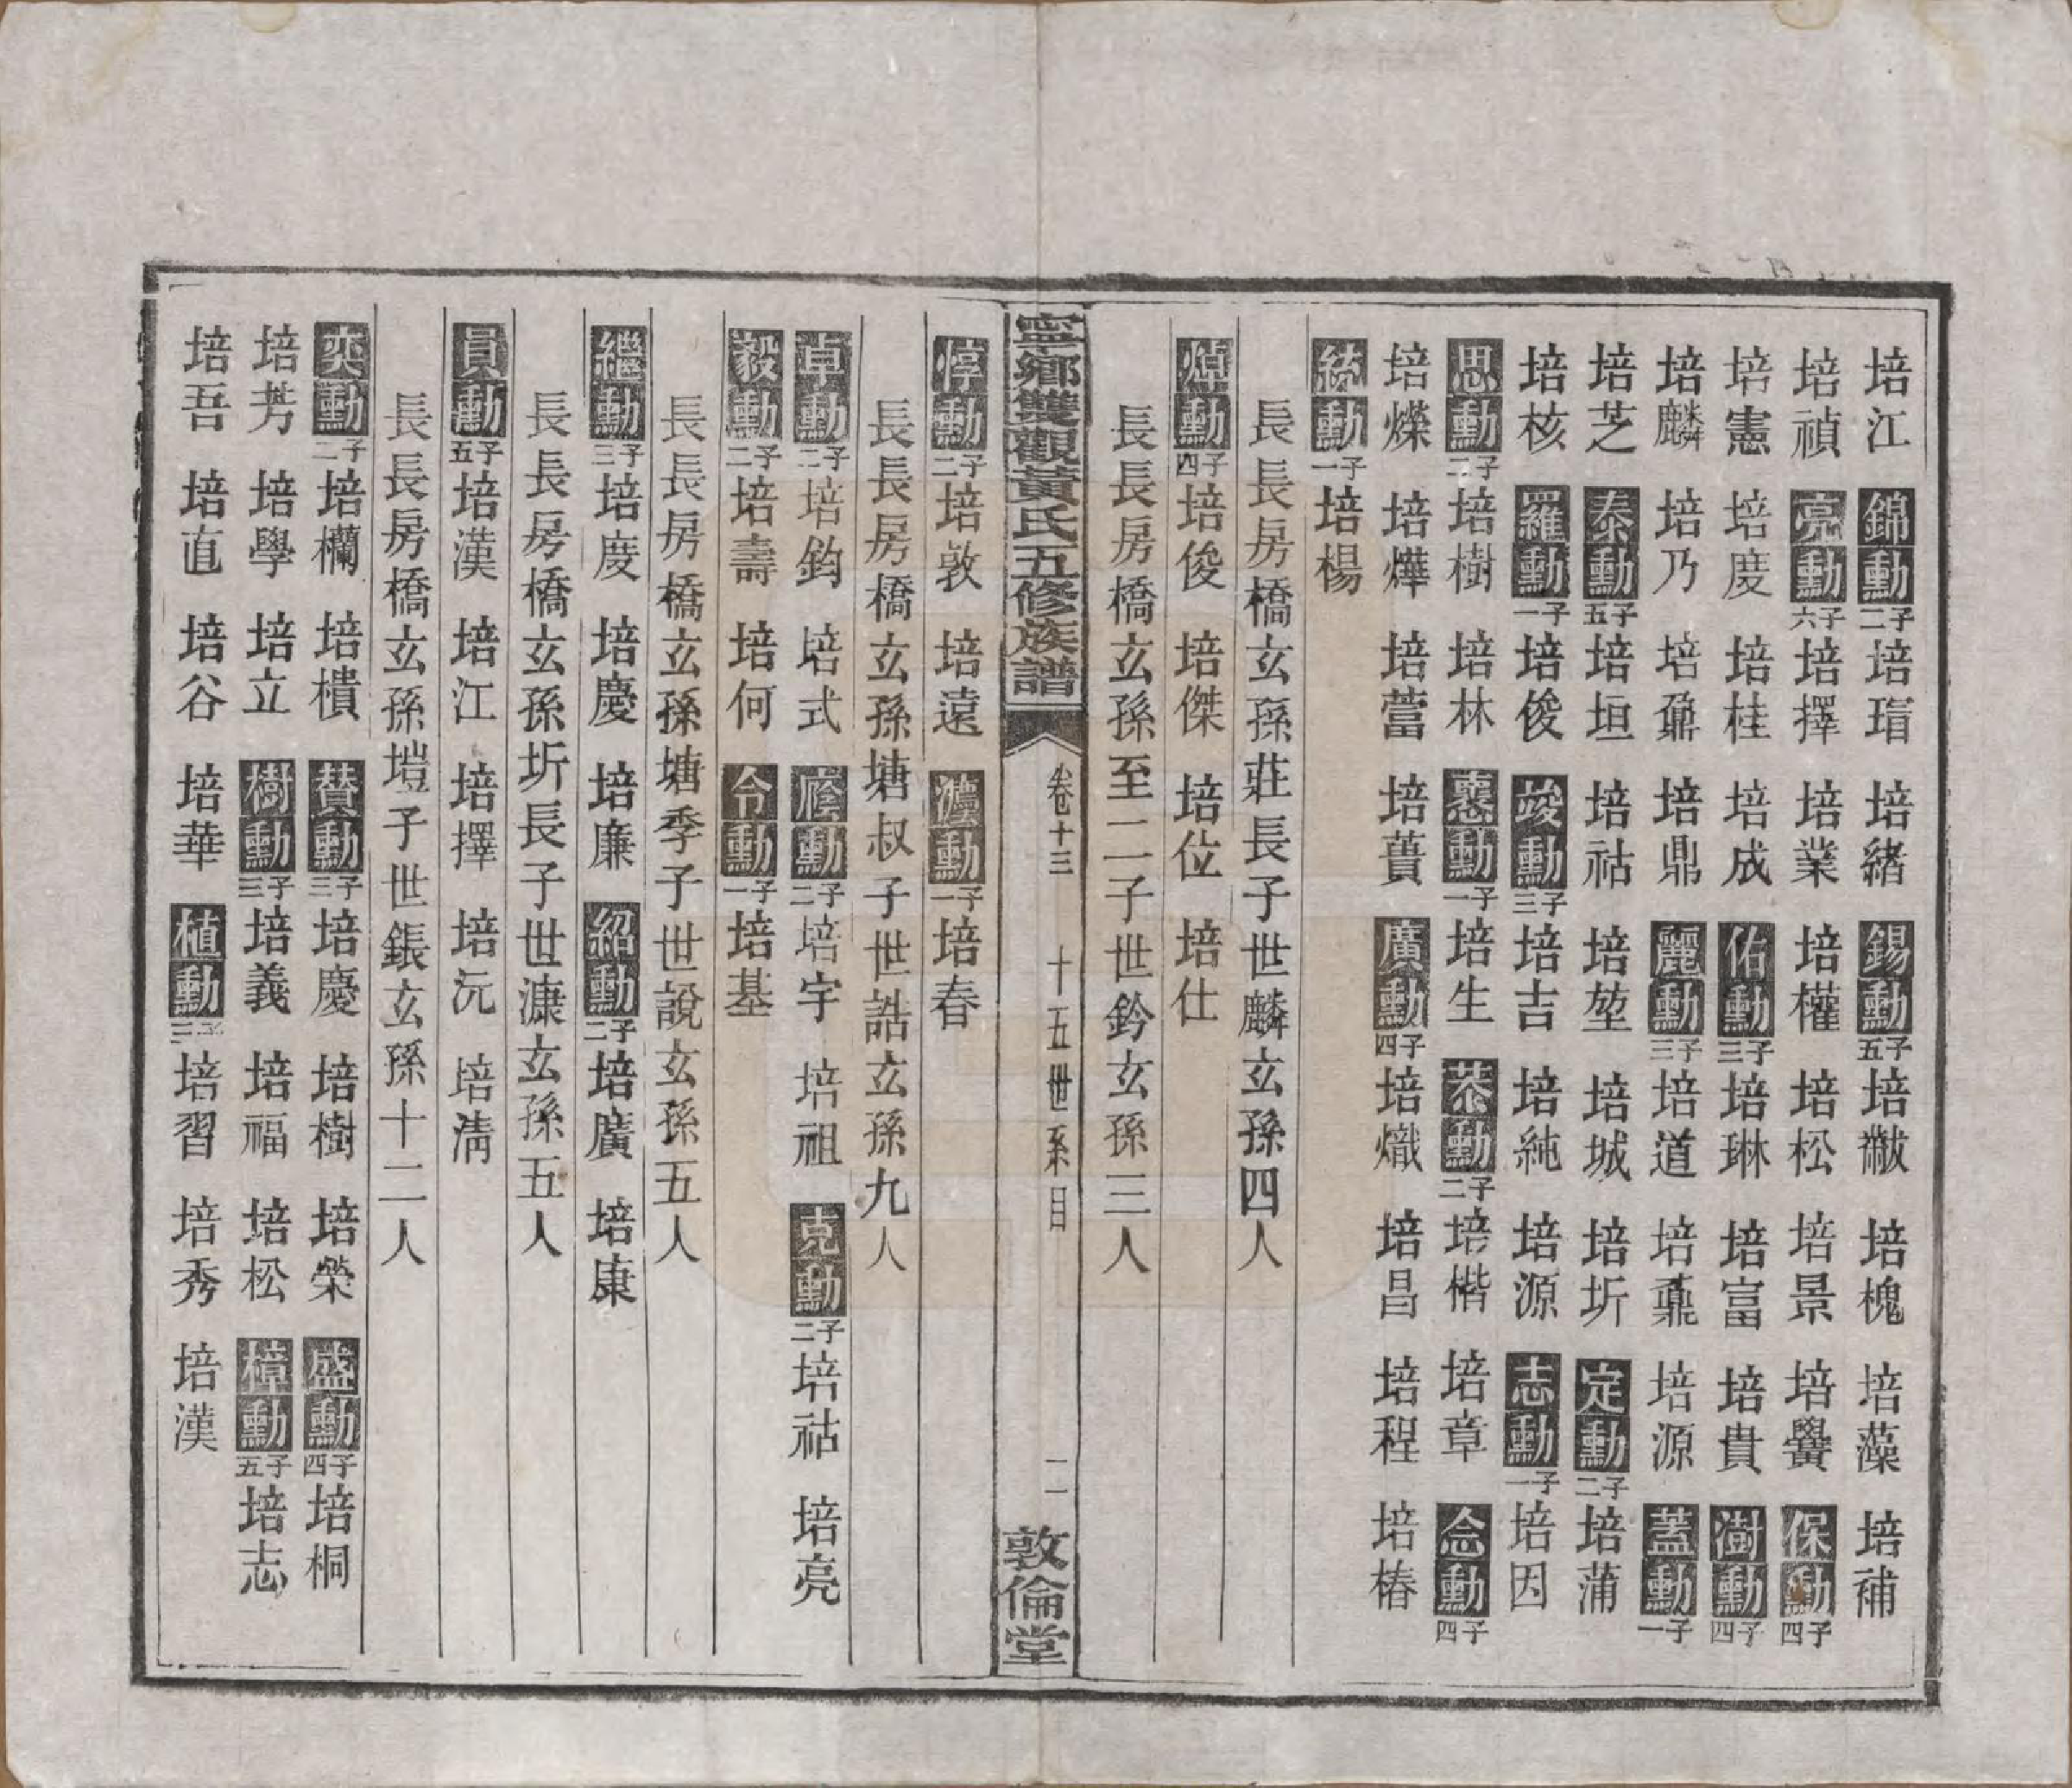 培江 錦勳二子 培瑁 培緒 錫勳五子 培黻 培槐 培藻 培補
培禎 亮勳六子 培擇 培業 培權 培松 培景 培黌 保勳四子
培憲 培度 培桂 培成 佑勳三子 培琳 培富 培貴 澍勳四子
培麟 培乃 培鼐 培鼎 麗勳三子 培道 培鼒 培源 蓋勳一子
培芝 泰勳五子 培垣 培祜 培堃 培城 培圻 定勳二子 培蒲
培核 羅勳一子 培俊 竣勳三子 培吉 培純 培源 志勳一子 培因
思勳二子 培樹 培林 懸勳一子 培生 恭勳二子 培楷 培章 念勳四子
培爍 培燁 培蕾 培蕡 廣勳四子 培熾 培昌 培程 培椿
統勳一子 培楊
長長房橋玄孫莊長子世麟玄孫四人
焯勳四子 培俊 培傑 培位 培仕
長長房橋玄孫至二子世鈐玄孫三人
寧鄉雙觀黃氏五修族譜 卷十三 十五世系目 二 敦倫堂
惇勳二子 培敦 培遠 濃勳一子 培春
長長房橋玄孫塘叔子世誥玄孫九人
卓勳二子 培鈞 培式 蔭勳二子 培宇 培祖 克勳二子 培祜 培亮
毅勳二子 培壽 培何 令勳一子 培基
長長房橋玄孫塘季子世說玄孫五人
繼勳三子 培度 培慶 培廉 紹勳二子 培廣 培康
長長房橋玄孫圻長子世漮玄孫五人
員勳五子 培漢 培江 培擇 培沅 培清
長長房橋玄孫塏子世鋹玄孫十二人
奕勳二子 培欄 培樻 贊勳三子 培慶 培樹 培榮 盛勳四子 培桐
培芳 培學 培立 樹勳三子 培義 培福 培松 樟勳五子 培志
培吾 培直 培谷 培華 植勳三子 培習 培秀 培漢